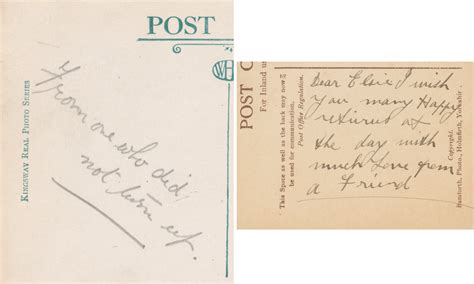 POST
KINGSWAY REAL PHOTO SERIES
From one who did
not turn up.
POST C
For Inland u
This Space as well as the back may now
be used for communication.
Post Office Regulation.
Dear Elsie I wish
you many Happy
returns of
the day with
much Love from
a Friend
Copyright.
Bamforth, Photo, Holmfirth, Yorkshir